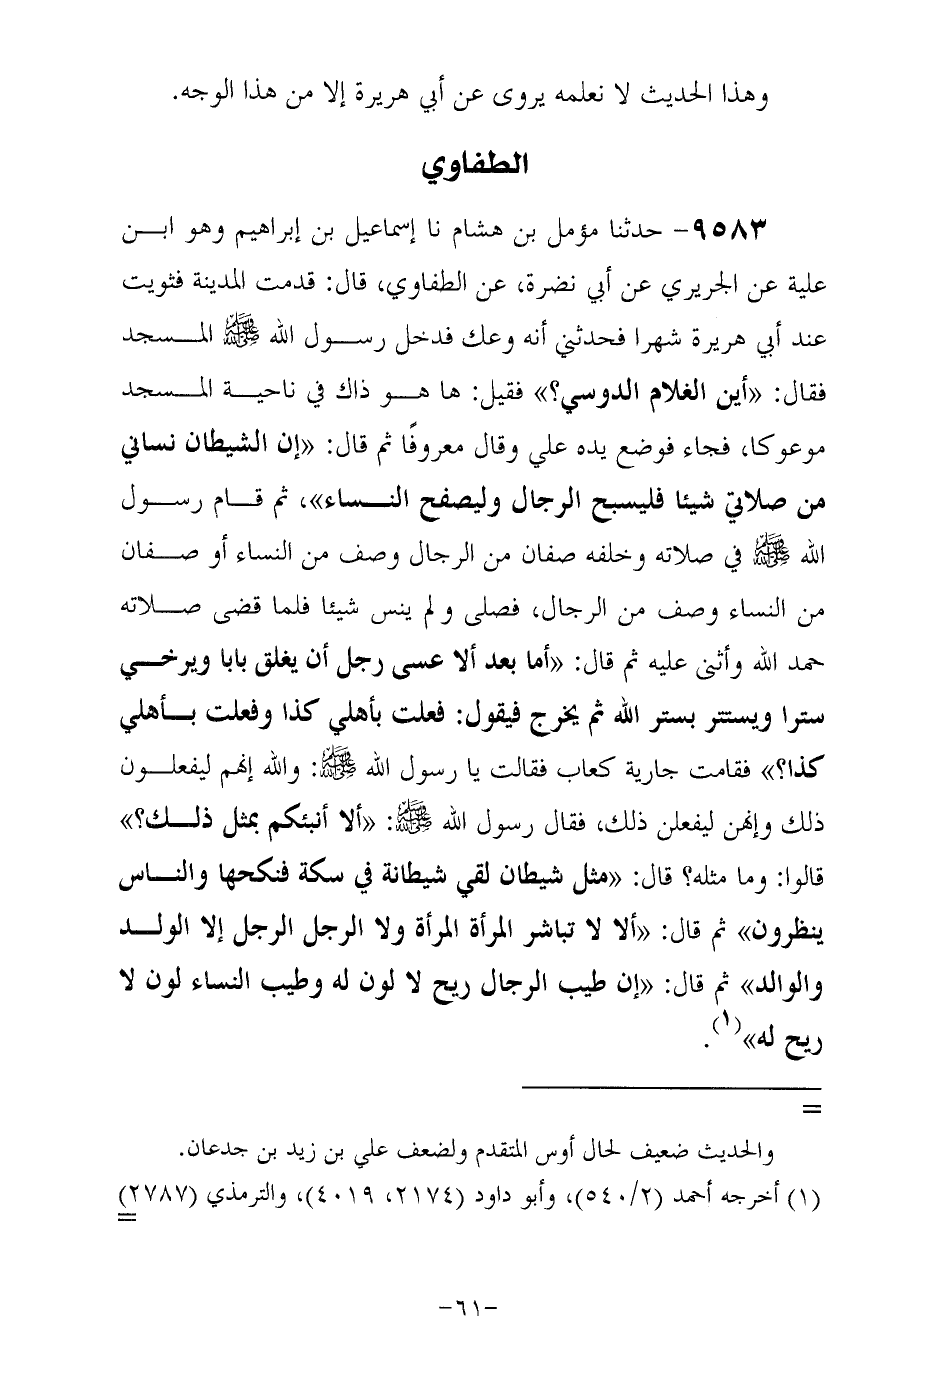 وهذا الحديث لا نعلمه يروى عن أبي هريرة إلا من هذا الوجه.
الطفاوي
٩٥٨٣- حدثنا مؤمل بن هشام نا إسماعيل بن إبراهيم وهو ابن
علية عن الجريري عن أبي نضرة، عن الطفاوي، قال: قدمت المدينة فثويت
عند أبي هريرة شهرا فحدثني أنه وعك فدخل رسول الله ﷺ المسجد
فقال: «أين الغلام الدوسي؟» فقيل: ها هو ذاك في ناحية المسجد
موعوكا، فجاء فوضع يده علي وقال معروفًا ثم قال: «إن الشيطان نساني
من صلاتي شيئا فليسبح الرجال وليصفح النساء»، ثم قام رسول
الله ﷺ في صلاته وخلفه صفان من الرجال وصف من النساء أو صفان
من النساء وصف من الرجال، فصلى ولم ينس شيئا فلما قضى صلاته
حمد الله وأثنى عليه ثم قال: «أما بعد ألا عسى رجل أن يغلق بابا ويرخي
سترا ويستتر بستر الله ثم يخرج فيقول: فعلت بأهلي كذا وفعلت بأهلي
كذا؟» فقامت جارية كعاب فقالت يا رسول الله ﷺ: والله إنهم ليفعلون
ذلك وإنهن ليفعلن ذلك، فقال رسول الله ﷺ: «ألا أنبئكم بمثل ذلك؟»
قالوا: وما مثله؟ قال: «مثل شيطان لقي شيطانة في سكة فنكحها والناس
ينظرون» ثم قال: «ألا لا تباشر المرأة المرأة ولا الرجل الرجل إلا الولد
والوالد» ثم قال: «إن طيب الرجال ريح لا لون له وطيب النساء لون لا
ريح له»(١).
=
والحديث ضعيف لحال أوس المتقدم ولضعف علي بن زيد بن جدعان.
(١) أخرجه أحمد (٥٤٠/٢)، وأبو داود (٢١٧٤، ٤٠١٩)، والترمذي (٢٧٨٧)
=
-٦١-